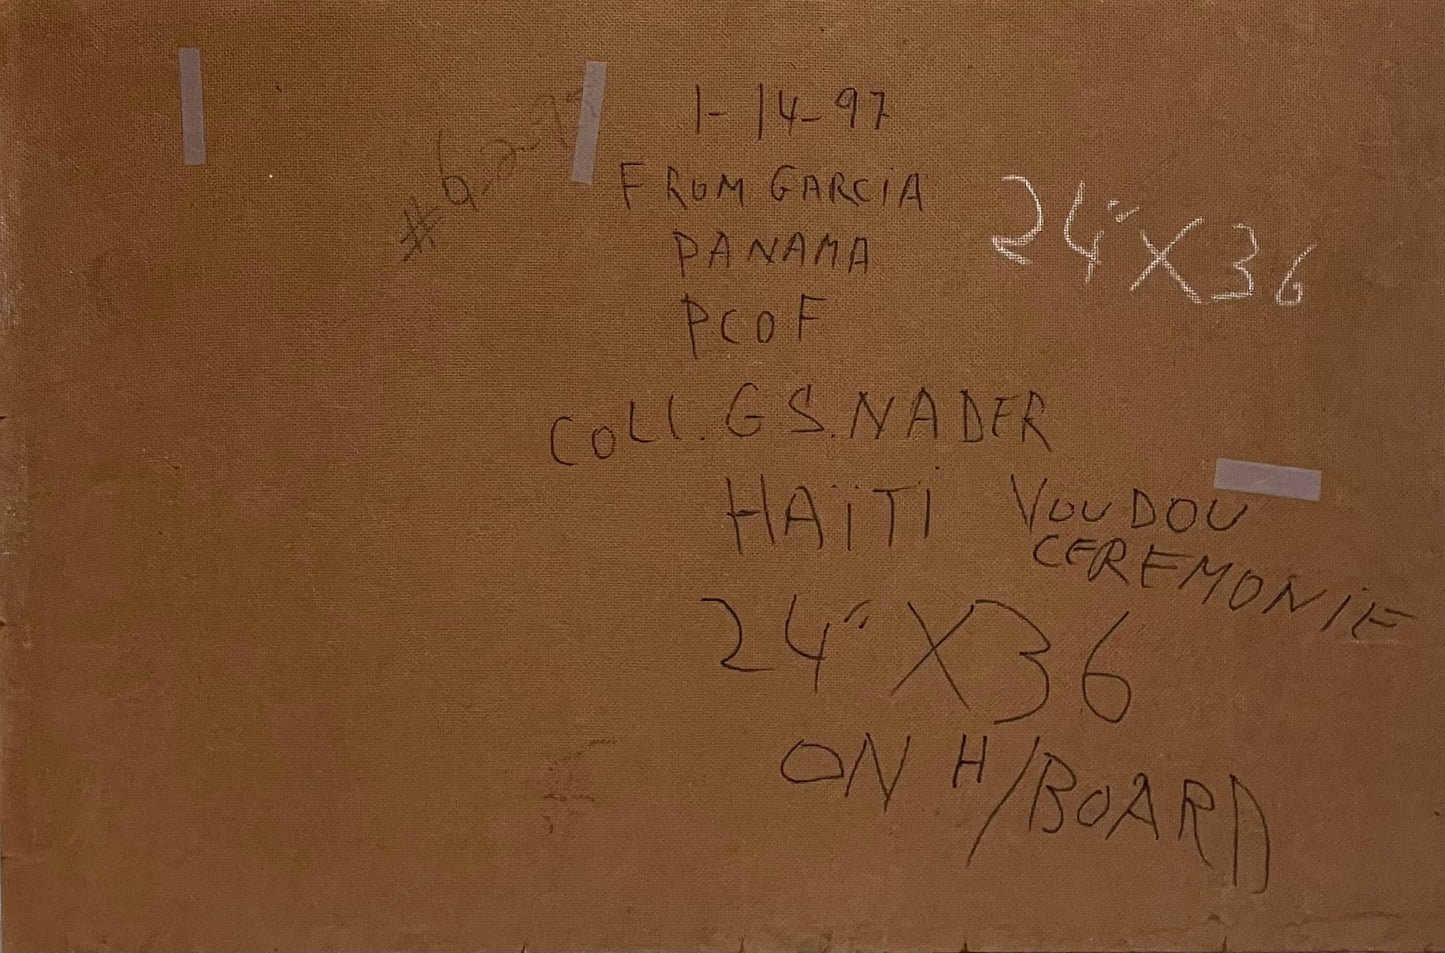 1-14-97
FROM GARCIA
PANAMA
PCOF
#6-2-97
24" X 36
COLL. G.S. NADER
HAÏTI
VOUDOU
CEREMONIE
24" X 36
ON H/BOARD